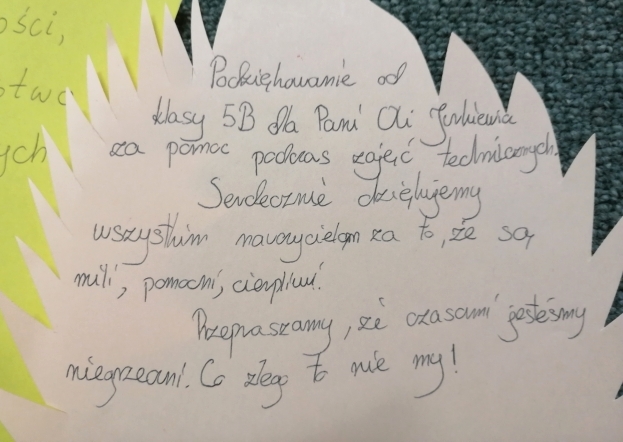 ości,
otwo
ych
Podziękowanie od
klasy 5B dla Pani Oli Jurkiewicz
za pomoc podczas zajęć technicznych.
Serdecznie dziękujemy
wszystkim nauczycielom za to, że są
mili, pomocni, cierpliwi.
Przepraszamy, że czasami jesteśmy
niegrzeczni. Co złego to nie my!